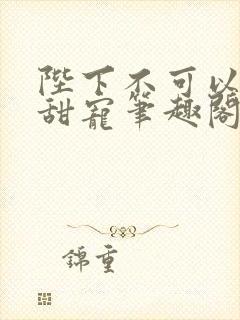 陛下不可以
甜寵筆趣閣
錦重